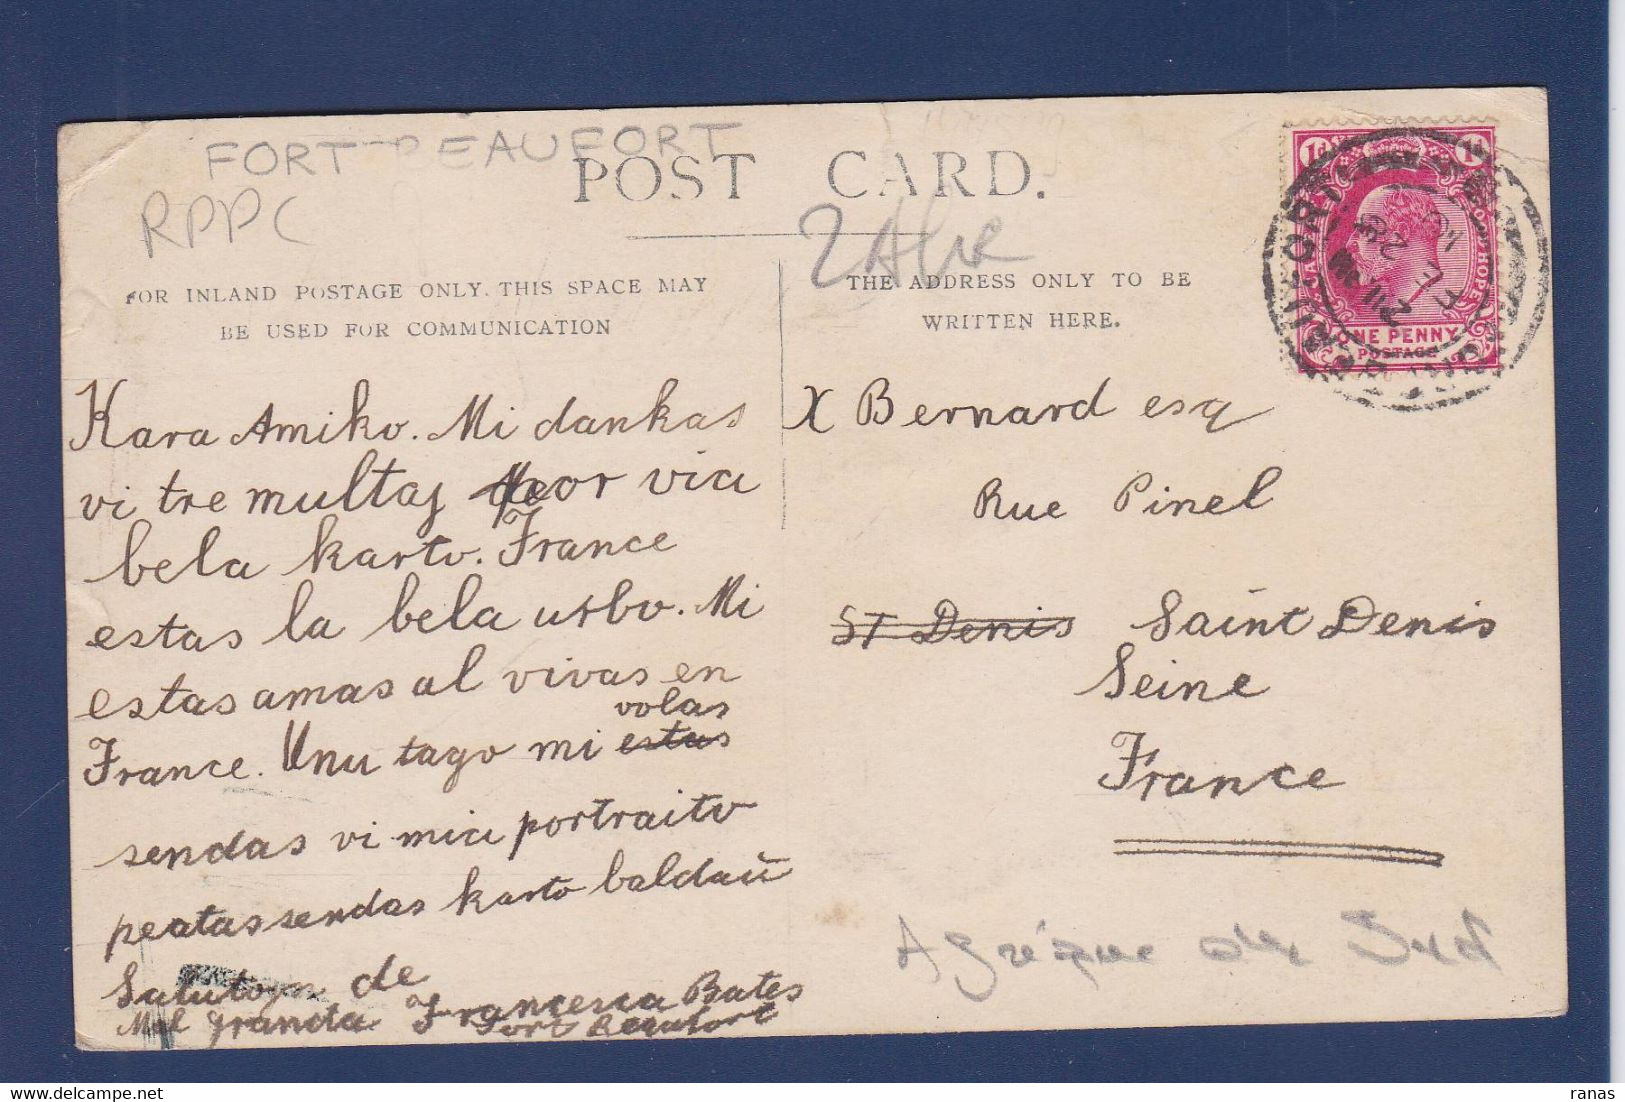 FORT BEAUFORT
RPPC
POST CARD.
FOR INLAND POSTAGE ONLY. THIS SPACE MAY
BE USED FOR COMMUNICATION
THE ADDRESS ONLY TO BE
WRITTEN HERE.
1d 1d
ONE PENNY
POSTAGE
Kara Amiko. Mi dankas
vi tre multaj por via
bela karto. France
estas la bela urbo. Mi
estas amas al vivas en
volas
France. Unu tago mi estas
sendas vi mia portraito
peatas sendas karto baldaŭ
Salutojn de
Mal granda Francesca Bates
Fort Beaufort
X Bernard esq
Rue Pinel
St Denis Saint Denis
Seine
France
Afrique du Sud
ranas